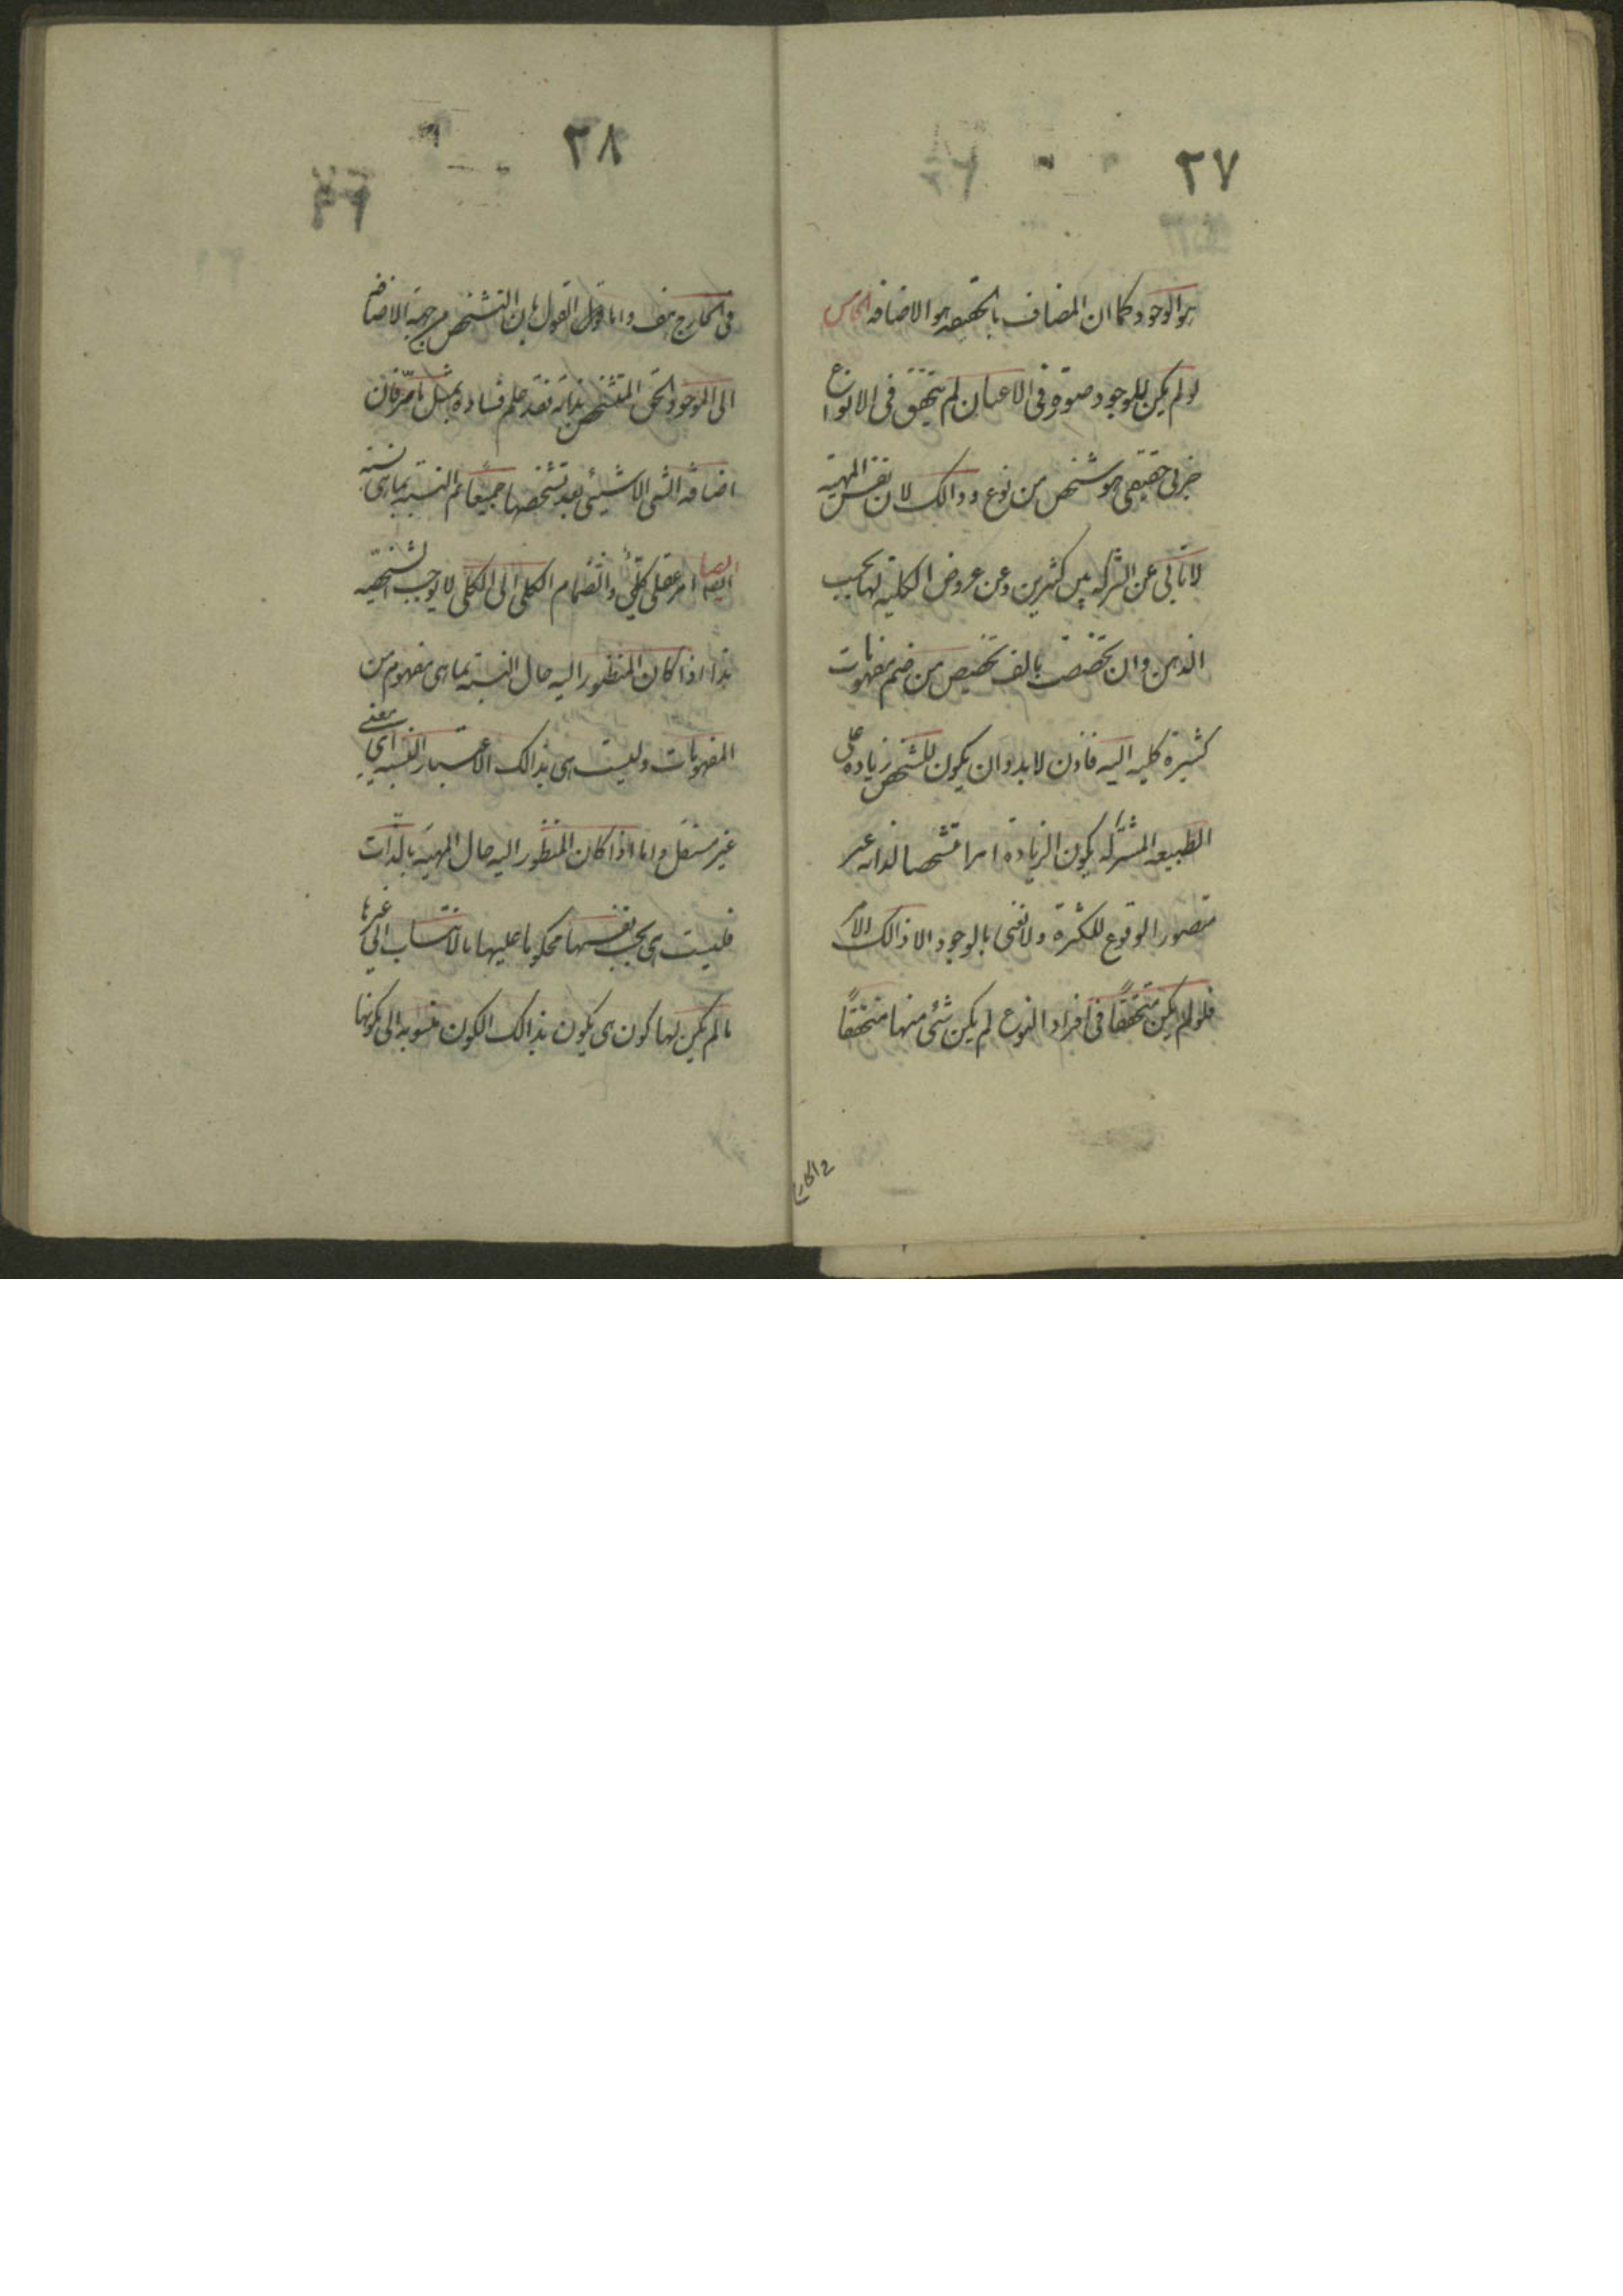 ٢٧
هو الوجود كما ان المضاف بالحقيقه هو الاضافه الخامس
لو لم يكن للوجود صورة فى الاعيان لم يتحقق فى الانواع
جزئى حقيقى هو شخص من نوع و ذالك لان نفس المهية
لا تابى عن الشركه بين كثيرين و عن عروض الكلية لها بحسب
الذهن و ان تخصصت بالف تخصيص من ضم مفهومات
كثيرة كليه اليه فاذن لا بد و ان يكون للشخص زياده على
الطبيعه المشتركه يكون الزيادة امرا متشخصا لذاته غير
متصور الوقوع للكثرة و لا نعنى بالوجود الا ذالك الامر
فلو لم يكن متحققًا فى افراد النوع لم يكن شئ منها متحققًا
فى الخارج
٢٨
فى الخارج هف و اما قول القول بان التشخص من جهة الاضافه
الى الموجود الحق المتشخص بذاته فقد علم فساده بمثل ما مر فان
اضافه الشى الا شيئى بعد تشخصها جميعًا ثم النسبه بما هى نسبة
ايضا امر عقلى كلّي و انضمام الكلى الى الكلى لا يوجب الشخصّيه
هذا اذا كان المنظور اليه حال النسبة بما هى مفهوم من
المفهومات و ليست هى بذالك الاعتبار النسبه اى معنى
غير مستقل و اما اذا كان المنظور اليه حال المهية بالذّات
فليست هى بحسب نفسها محكوما عليها بالانتساب الى غيرها
ما لم يكن لها كون هى يكون بذالك الكون منسوبه الى مكونها